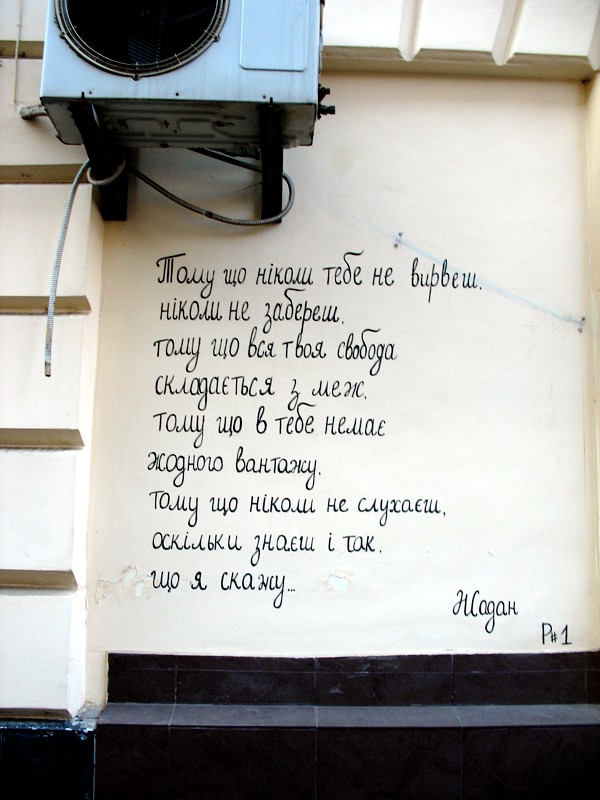 Тому що ніколи тебе не вирвеш.
ніколи не забереш.
тому що вся твоя свобода
складається з меж.
тому що в тебе немає
жодного вантажу.
тому що ніколи не слухаєш,
оскільки знаєш і так.
що я скажу...
Жадан
P#1